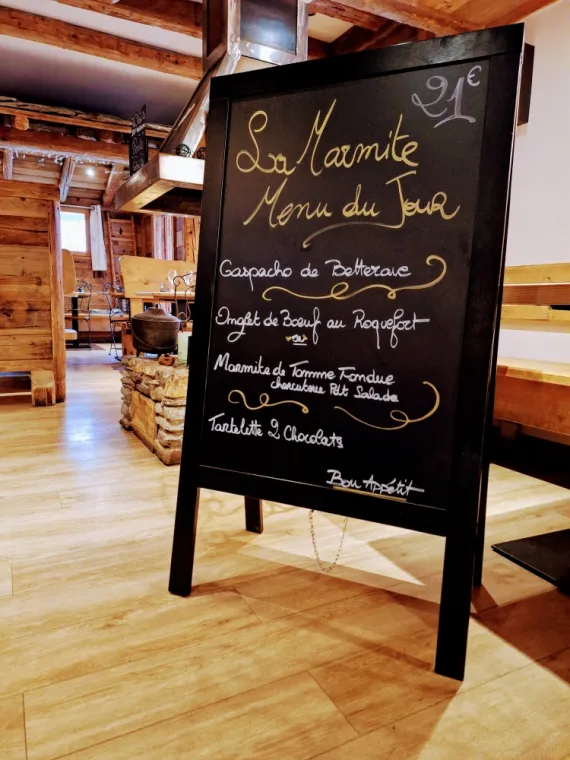 21€
La Marmite
Menu du Jour
Gaspacho de Betterave
Onglet de Bœuf au Roquefort
ou
Marmite de Tomme Fondue
charcuterie Pdt Salade
Tartelette 2 Chocolats
Bon Appétit